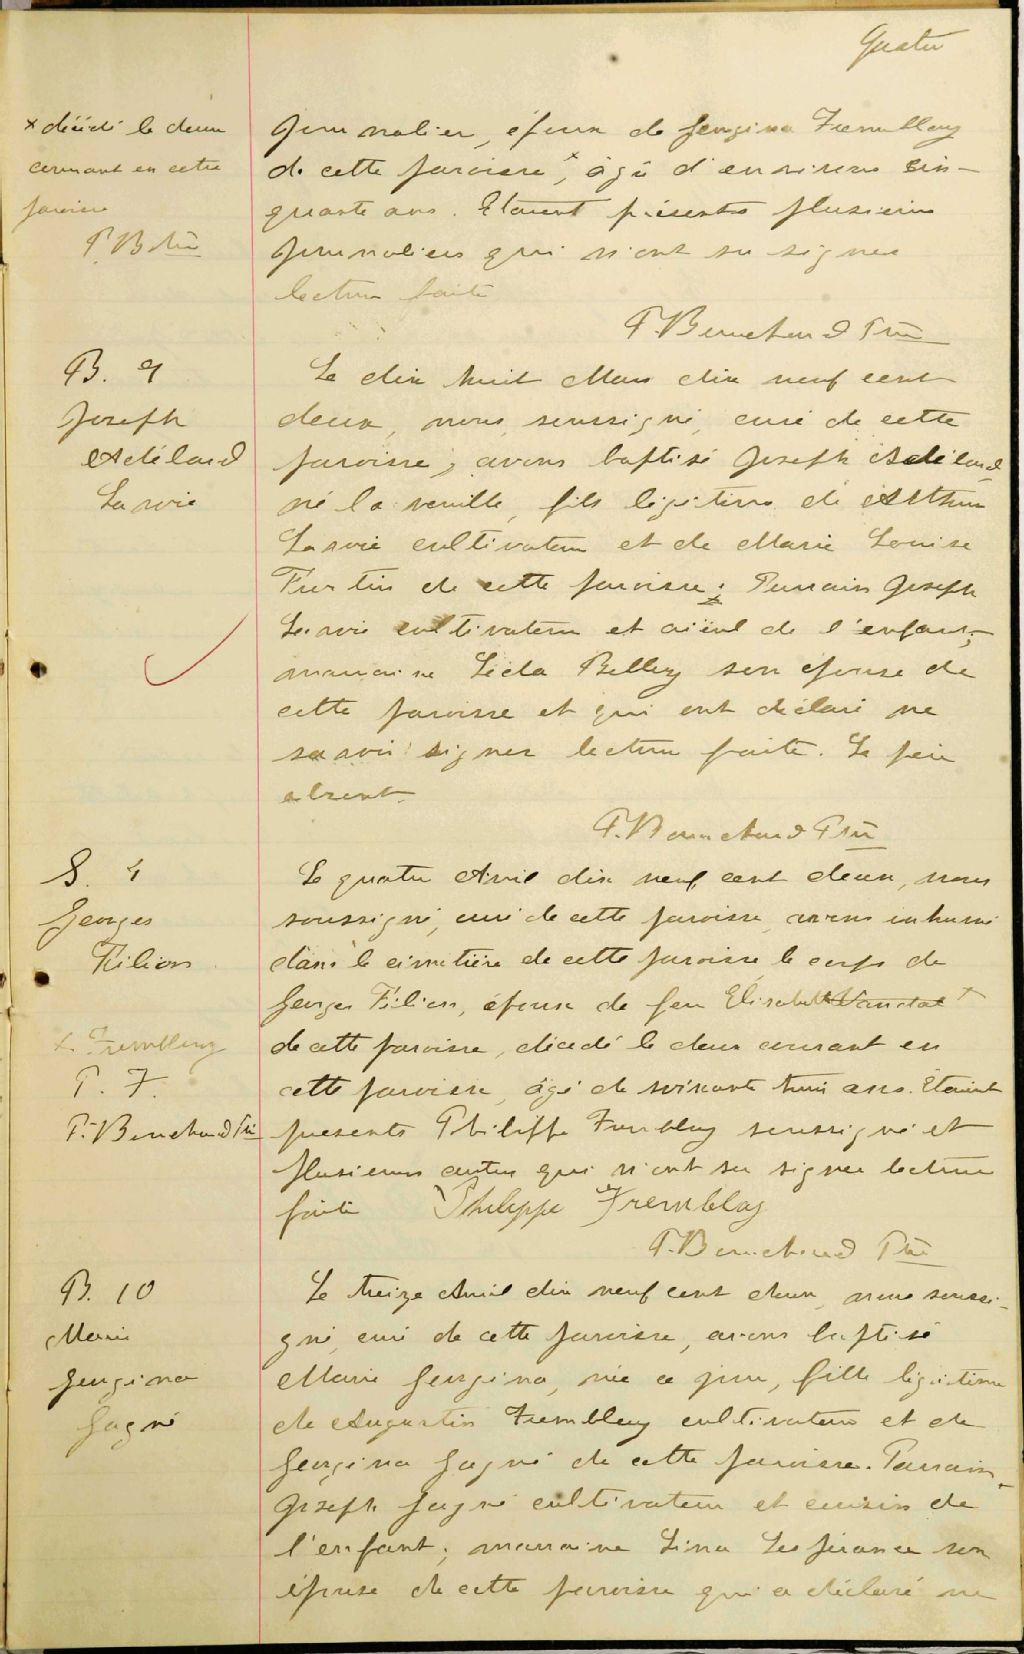 Quatre
x décédé le deux
courant en cette
paroisse
F. B. Ptre
journalier, époux de Georgina Tremblay
de cette paroisse x, âgé d'environ cin-
quante ans. Etaient présents plusieurs
journaliers qui n'ont su signer
lecture faite
F. Bouchard Ptre
B. 9
Joseph
Adélard
Lavoie
Le dix huit Mars dix neuf cent
deux, nous, soussigné, curé de cette
paroisse, avons baptisé Joseph Adélard
né la veille, fils légitime de Arthur
Lavoie cultivateur et de Marie Louise
Fortin de cette paroisse; Parrain Joseph
Lavoie cultivateur et aïeul de l'enfant;
marraine Léda Belley son épouse de
cette paroisse et qui ont déclaré ne
savoir signer lecture faite. Le père
absent.
F. Bouchard Ptre
S. 4
Georges
Filion
Le quatre Avril dix neuf cent deux, nous
soussigné, curé de cette paroisse, avons inhumé
dans le cimetière de cette paroisse le corps de
Georges Filion, époux de feu Elisabeth x
x Tremblay
P. T.
F. Bouchard Ptre
de cette paroisse, décédé le deux courant en
cette paroisse, âgé de soixante trois ans. Etaient
présents Philippe Tremblay soussigné et
plusieurs autres qui n'ont su signer lecture
faite Philippe Tremblay
F. Bouchard Ptre
B. 10
Marie
Georgina
Gagné
Le treize Avril dix neuf cent deux, nous soussi-
gné, curé de cette paroisse, avons baptisé
Marie Georgina, née ce jour, fille légitime
de Augustin Tremblay cultivateur et de
Georgina Gagné de cette paroisse. Parrain
Joseph Gagné cultivateur et cousin de
l'enfant; marraine Lina son
épouse de cette paroisse qui a déclaré ne